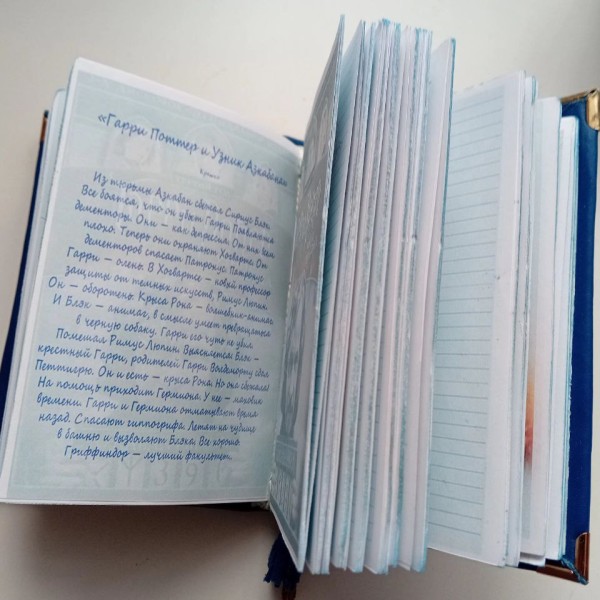 «Гарри Поттер и Узник Азкабана
Кратко
Из тюрьмы Азкабан сбежал Сириус Блэк.
Все боятся, что он убьет Гарри. Появляются
дементоры. Они — как депрессия. От них всем
плохо. Теперь они охраняют Хогвартс. От
дементоров спасает Патронус. Патронус
Гарри — олень. В Хогвартсе — новый профессор
защиты от темных искусств, Римус Люпин.
Он — оборотень. Крыса Рона — волшебник-анимаг.
И Блэк — анимаг, в смысле умеет превращаться
в черную собаку. Гарри его чуть не убил.
Помешал Римус Люпин. Выясняется: Блэк —
крестный Гарри, родителей Гарри Волдеморту сдал
Петтигрю. Он и есть — крыса Рона. Но она сбежала!
На помощь приходит Гермиона. У нее — маховик
времени. Гарри и Гермиона отматывают время
назад. Спасают гиппогрифа. Летят на чудище
в башню и вызволяют Блэка. Все хорошо.
Гриффиндор — лучший факультет.